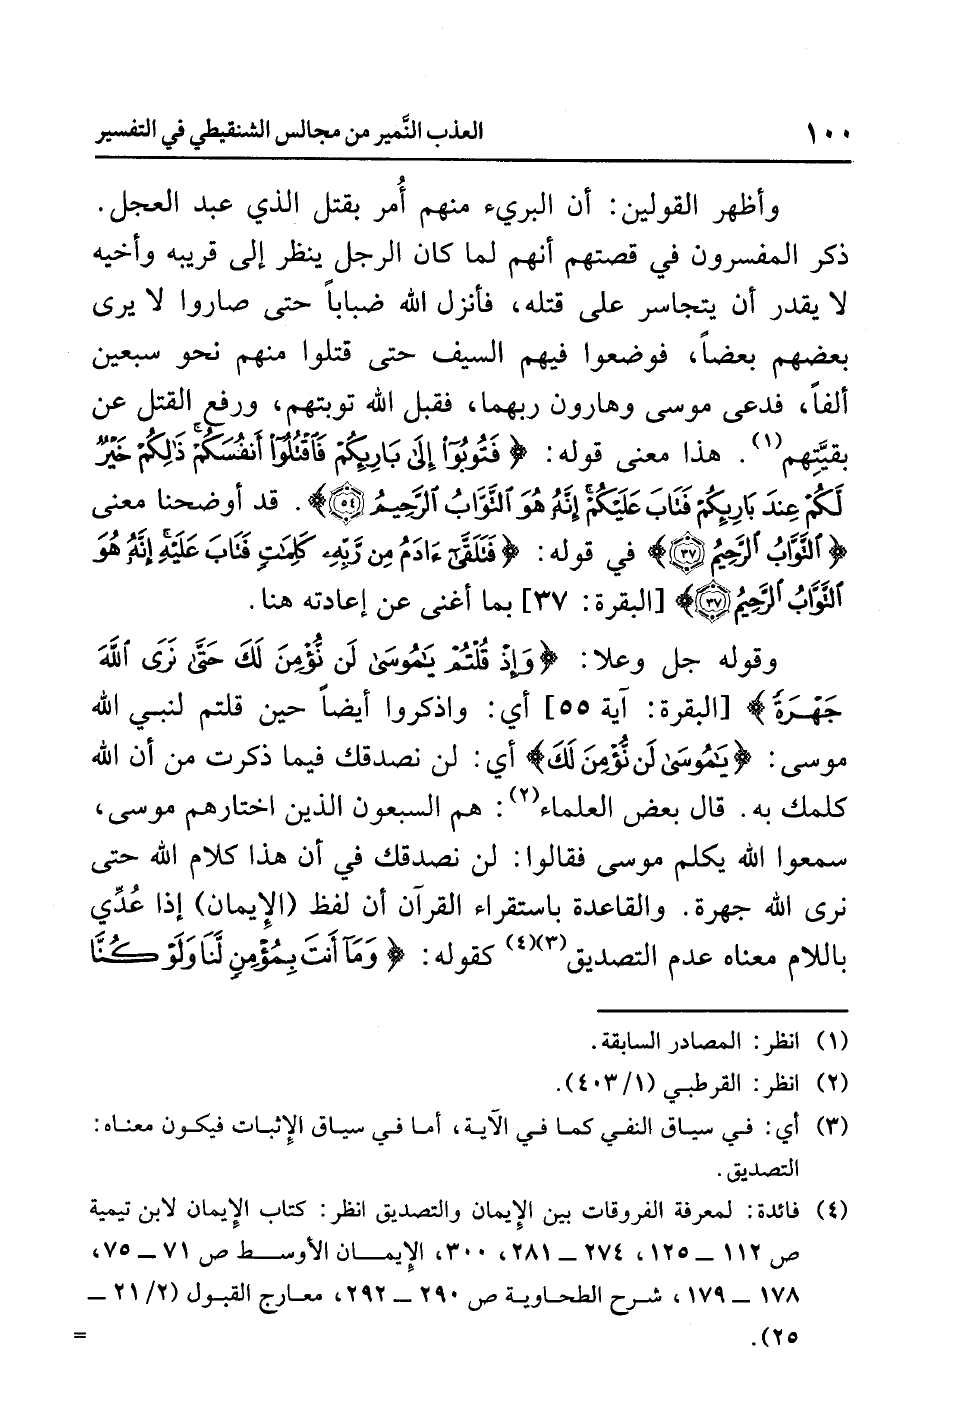 ١٠٠ العذب النَّمير من مجالس الشنقيطي في التفسير
وأظهر القولين: أن البريء منهم أُمر بقتل الذي عبد العجل.
ذكر المفسرون في قصتهم أنهم لما كان الرجل ينظر إلى قريبه وأخيه
لا يقدر أن يتجاسر على قتله، فأنزل الله ضباباً حتى صاروا لا يرى
بعضهم بعضاً، فوضعوا فيهم السيف حتى قتلوا منهم نحو سبعين
ألفاً، فدعى موسى وهارون ربهما، فقبل الله توبتهم، ورفع القتل عن
بقيَّتِهم(١). هذا معنى قوله: ﴿ فَتُوبُوٓا۟ إِلَىٰ بَارِئِكُمْ فَٱقْتُلُوٓا۟ أَنفُسَكُمْ ذَٰلِكُمْ خَيْرٌ
لَّكُمْ عِندَ بَارِئِكُمْ فَتَابَ عَلَيْكُمْ إِنَّهُۥ هُوَ ٱلتَّوَّابُ ٱلرَّحِيمُ ٥٤﴾. قد أوضحنا معنى
﴿ ٱلتَّوَّابُ ٱلرَّحِيمُ ٣٧﴾ في قوله: ﴿ فَتَلَقَّىٰٓ ءَادَمُ مِن رَّبِّهِۦ كَلِمَٰتٍ فَتَابَ عَلَيْهِ إِنَّهُۥ هُوَ
ٱلتَّوَّابُ ٱلرَّحِيمُ ٣٧﴾ [البقرة: ٣٧] بما أغنى عن إعادته هنا.
وقوله جل وعلا: ﴿ وَإِذْ قُلْتُمْ يَٰمُوسَىٰ لَن نُّؤْمِنَ لَكَ حَتَّىٰ نَرَى ٱللَّهَ
جَهْرَةً ﴾ [البقرة: آية ٥٥] أي: واذكروا أيضاً حين قلتم لنبي الله
موسى: ﴿ يَٰمُوسَىٰ لَن نُّؤْمِنَ لَكَ﴾ أي: لن نصدقك فيما ذكرت من أن الله
كلمك به. قال بعض العلماء(٢): هم السبعون الذين اختارهم موسى،
سمعوا الله يكلم موسى فقالوا: لن نصدقك في أن هذا كلام الله حتى
نرى الله جهرة. والقاعدة باستقراء القرآن أن لفظ (الإيمان) إذا عُدِّي
باللام معناه عدم التصديق(٣)(٤) كقوله: ﴿ وَمَآ أَنتَ بِمُؤْمِنٍ لَّنَا وَلَوْ كُنَّا
(١) انظر: المصادر السابقة.
(٢) انظر: القرطبي (١/ ٤٠٣).
(٣) أي: في سياق النفي كما في الآية، أما في سياق الإثبات فيكون معناه:
التصديق.
(٤) فائدة: لمعرفة الفروقات بين الإيمان والتصديق انظر: كتاب الإيمان لابن تيمية
ص ١١٢ ـ ١٢٥، ٢٧٤ ـ ٢٨١، ٣٠٠، الإيمان الأوسط ص ٧١ ـ ٧٥،
١٧٨ ـ ١٧٩، شرح الطحاوية ص ٢٩٠ ـ ٢٩٢، معارج القبول (٢/ ٢١ ـ
٢٥). =